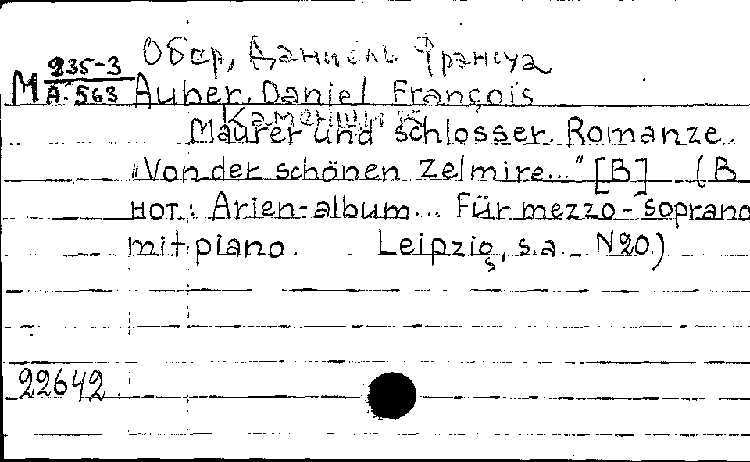 Обер, Даниель Франсуа
M 235-3
A. 563
Auber, Daniel François
Maurer und Schlosser. Romanze
"Von der schönen Zelmire..." [B] (В
нот.: Arien-album... Für mezzo-soprano
mit piano. Leipzig, s.a. N20.)
22642